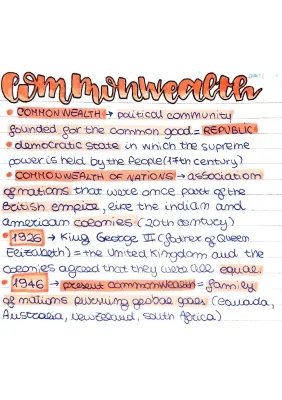 Commonwealth
• COMMONWEALTH → political community
founded for the common good = REPUBLIC
• democratic state in which the supreme
power is held by the People (17th century)
• COMMONWEALTH OF NATIONS → association
of nations that were once part of the
British empire, like the indian and
american colonies (20th century)
• 1926 → King George II (father of Queen
Elizabeth) = the United Kingdom and the
colonies agreed that they were all equal.
• 1946 → present commonwealth = family
of nations pursuing global goals (Canada,
Australia, New Zealand, South Africa)